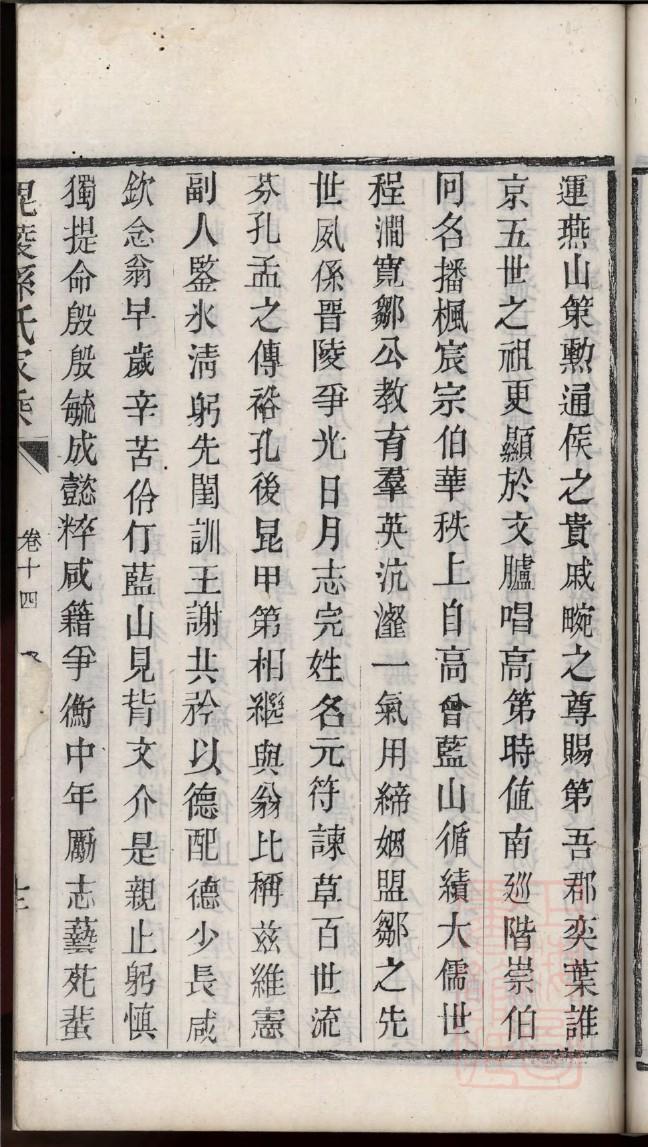 運燕山策勳通侯之貴戚畹之尊賜第吾郡奕葉誰
京五世之祖更顯於文臚唱高第時值南廵階崇伯
冏名播楓宸宗伯華秩上自高曾藍山循績大儒世
程澗寛鄒公教育羣英沆瀣一氣用締姻盟鄒之先
世夙係晋陵爭光日月志完姓名元符諫草百世流
芬孔孟之傳裕孔後昆甲第相繼與翁比稱兹維憲
副人鑒氷清躬先閨訓王謝共矜以德配德少長咸
欽念翁早歲辛苦伶仃藍山見背文介是親止躬慎
獨提命殷殷毓成懿粹咸籍爭衡中年勵志藝苑蜚
毘陵孫氏家乘
卷十四